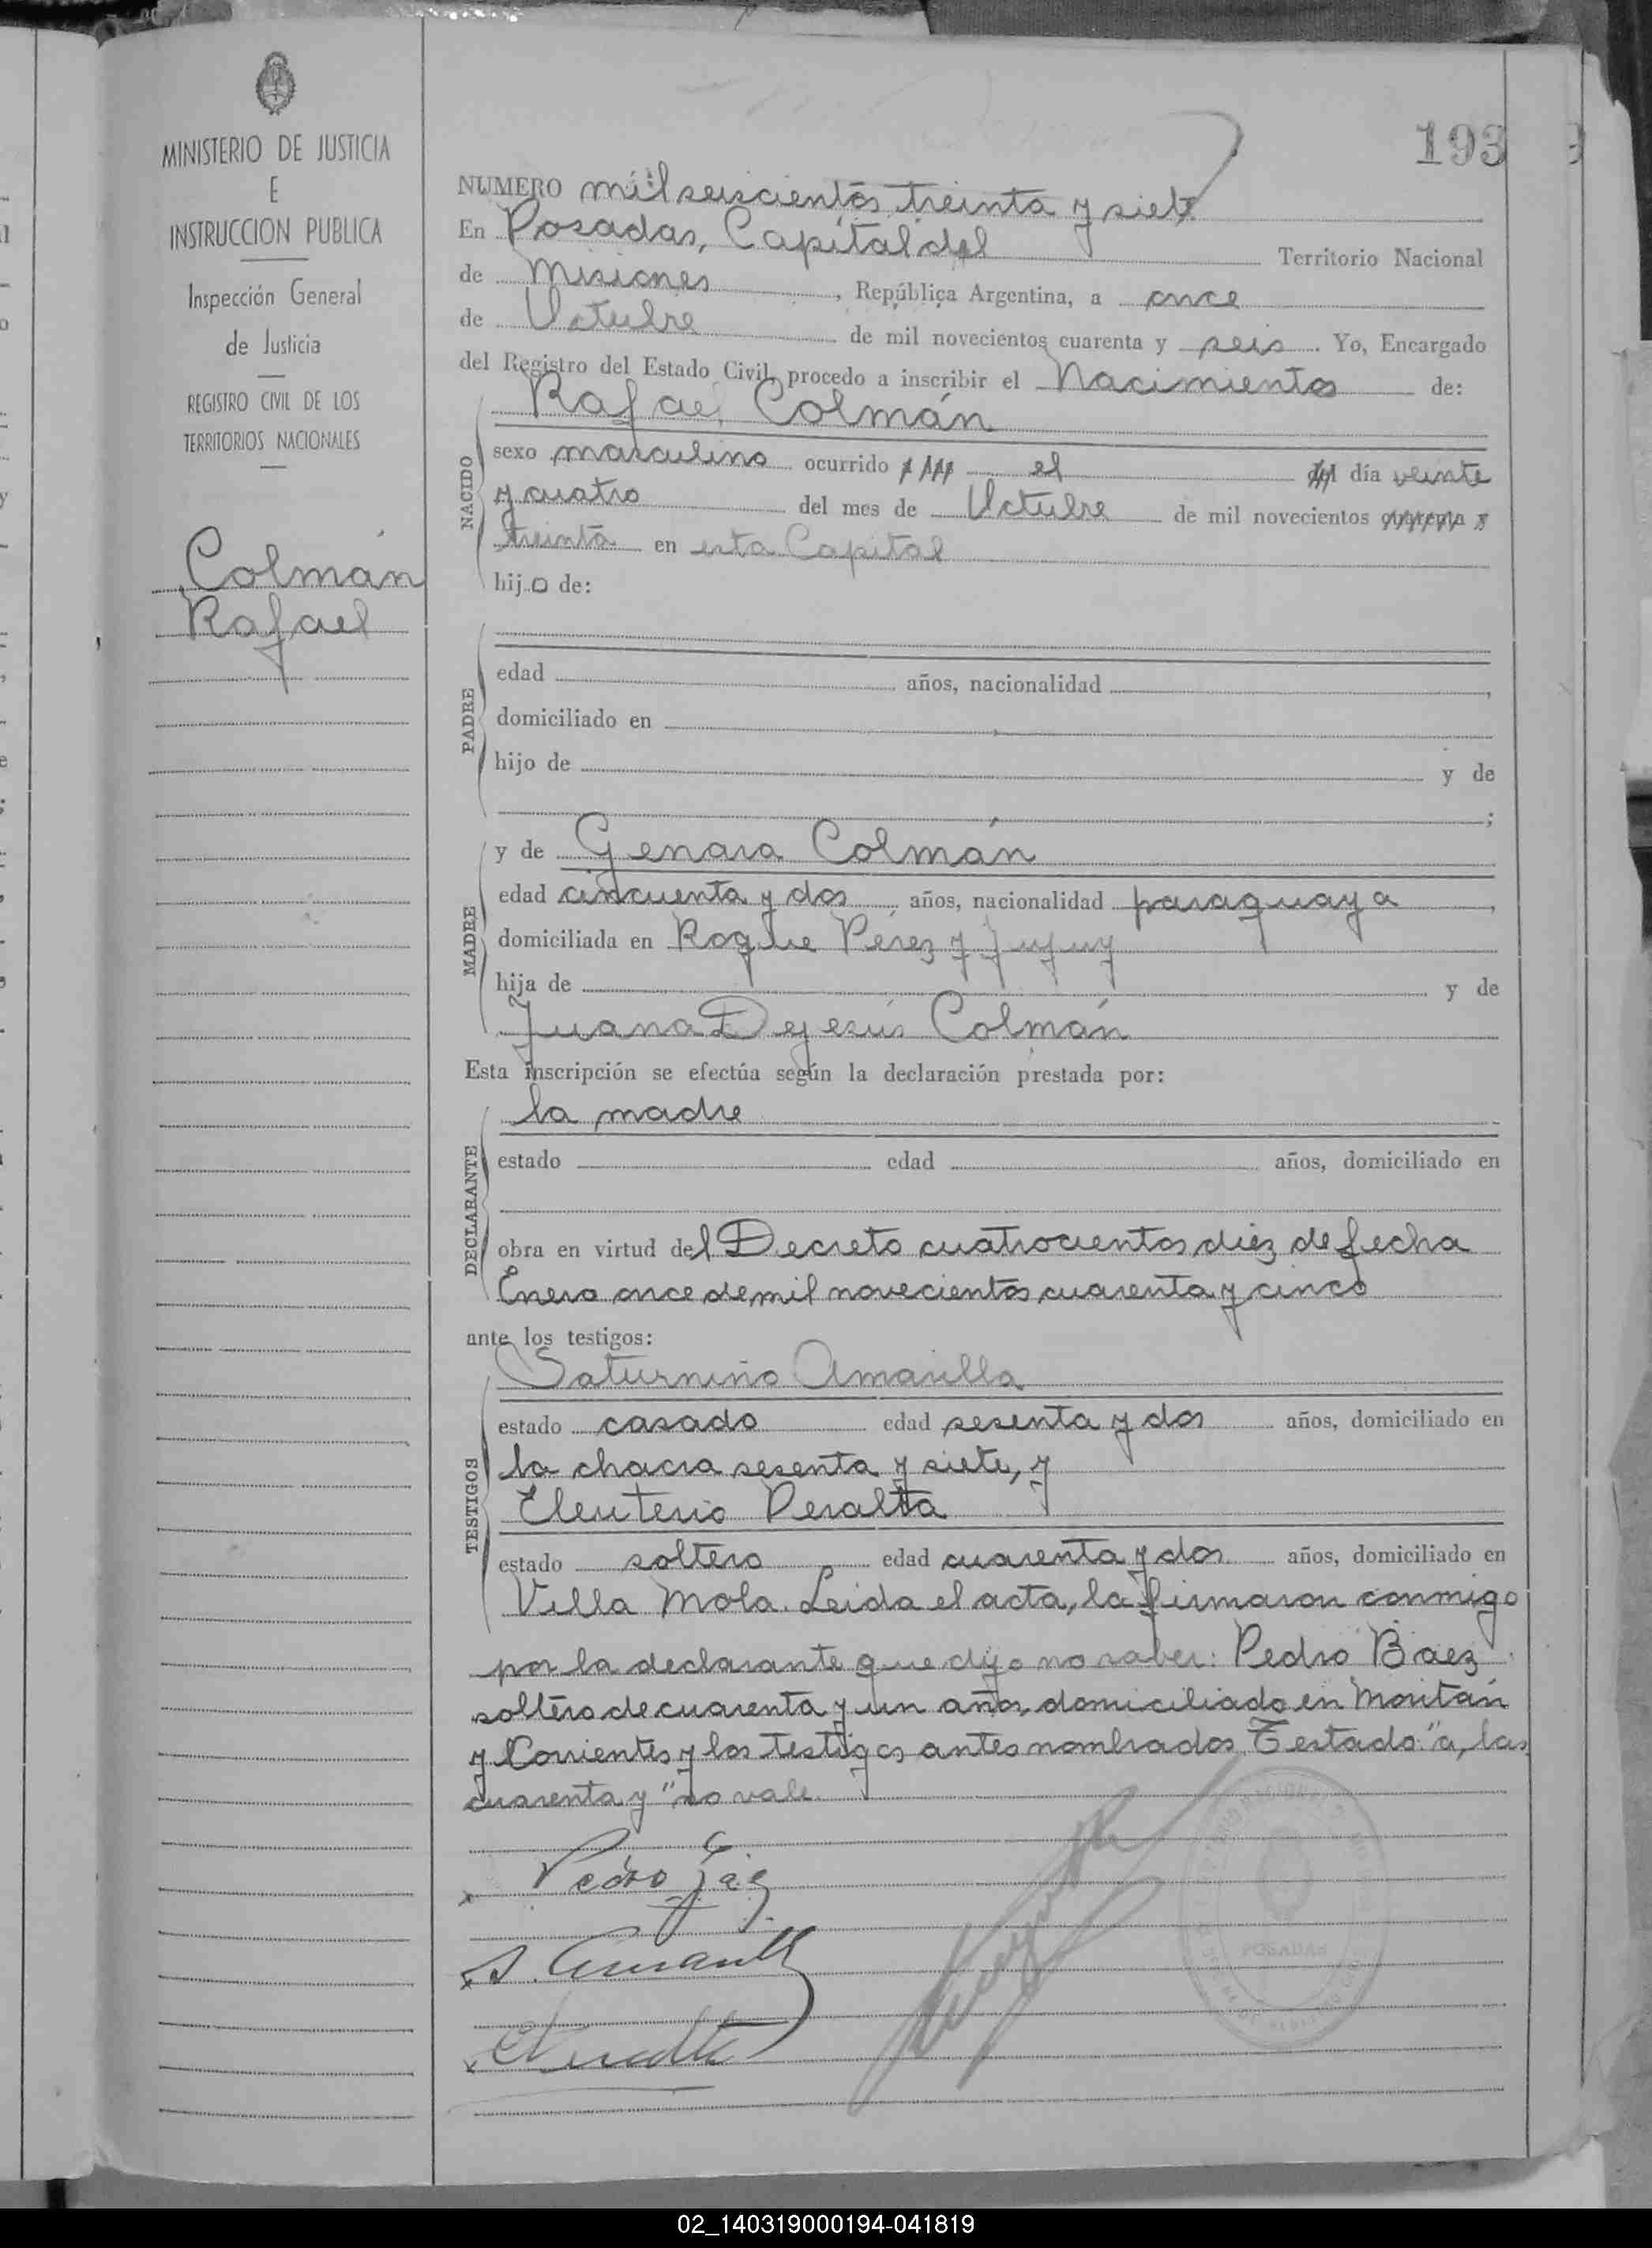 MINISTERIO DE JUSTICIA
E
INSTRUCCION PUBLICA
Inspección General
de Justicia
REGISTRO CIVIL DE LOS
TERRITORIOS NACIONALES
Colmán
Rafael
193
NUMERO mil seiscientos treinta y siete
En Posadas, Capital del Territorio Nacional
de Misiones, República Argentina, a once
de Octubre de mil novecientos cuarenta y seis. Yo, Encargado
del Registro del Estado Civil, procedo a inscribir el Nacimiento de:
NACIDO
Rafael Colmán
sexo masculino ocurrido a las el del día veinte
y cuatro del mes de Octubre de mil novecientos cuarenta y
treinta en esta Capital
hijo de:
PADRE
edad años, nacionalidad ,
domiciliado en
hijo de y de
;
MADRE
y de Genara Colmán
edad cincuenta y dos años, nacionalidad paraguaya,
domiciliada en Roque Pérez y Jujuy
hija de y de
Juana Dejesús Colmán
Esta inscripción se efectúa según la declaración prestada por:
DECLARANTE
la madre
estado edad años, domiciliado en
obra en virtud del Decreto cuatrocientos diez de fecha
Enero once de mil novecientos cuarenta y cinco
ante los testigos:
TESTIGOS
Saturnino Amarilla
estado casado edad sesenta y dos años, domiciliado en
la chacra sesenta y siete, y
Eleuterio Peralta
estado soltero edad cuarenta y dos años, domiciliado en
Villa Mola. Leida el acta, la firmaron conmigo
por la declarante que dijo no saber: Pedro Báez
soltero de cuarenta y un años, domiciliado en
y Corrientes y los testigos antes nombrados. Testado: "a, las
cuarenta y" no vale.
Pedro
S. Amarilla
POSADAS
02_140319000194-041819